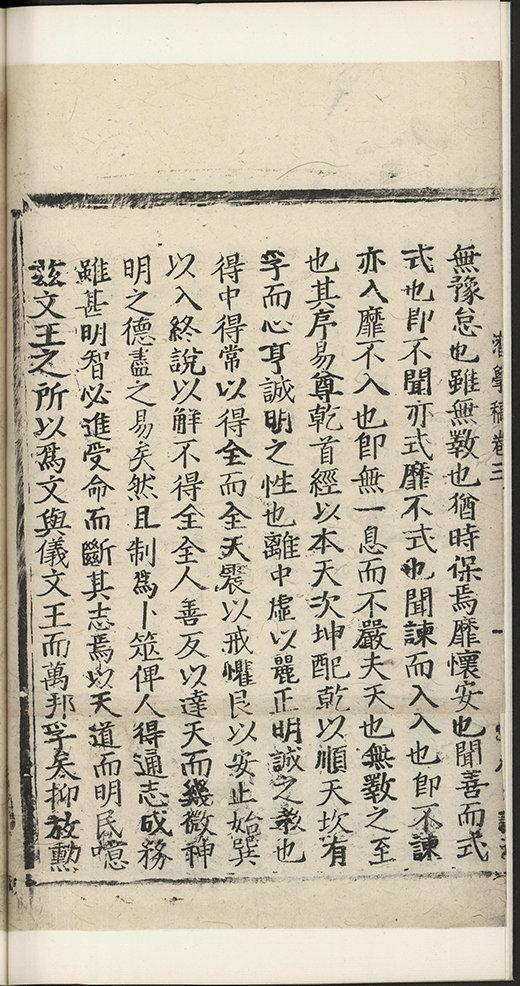 潛學稿卷三
無豫怠也雖無斁也猶時保焉靡懷安也聞善而式
式也卽不聞亦式靡不式也聞諫而入入也卽不諫
亦入靡不入也卽無一息而不嚴夫天也無斁之至
也其序易尊乾首經以本天次坤配乾以順天坎有
孚而心亨誠明之性也離中虛以麗正明誠之教也
得中得常以得全而全天震以戒懼艮以安止始巽
以入終說以解不得全全人善反以達天而幾微神
明之德盡之易矣然且制爲卜筮俾人得通志成務
雖甚明智必進受命而斷其志焉以天道而明民噫
茲文王之所以爲文與儀文王而萬邦孚矣抑放勳